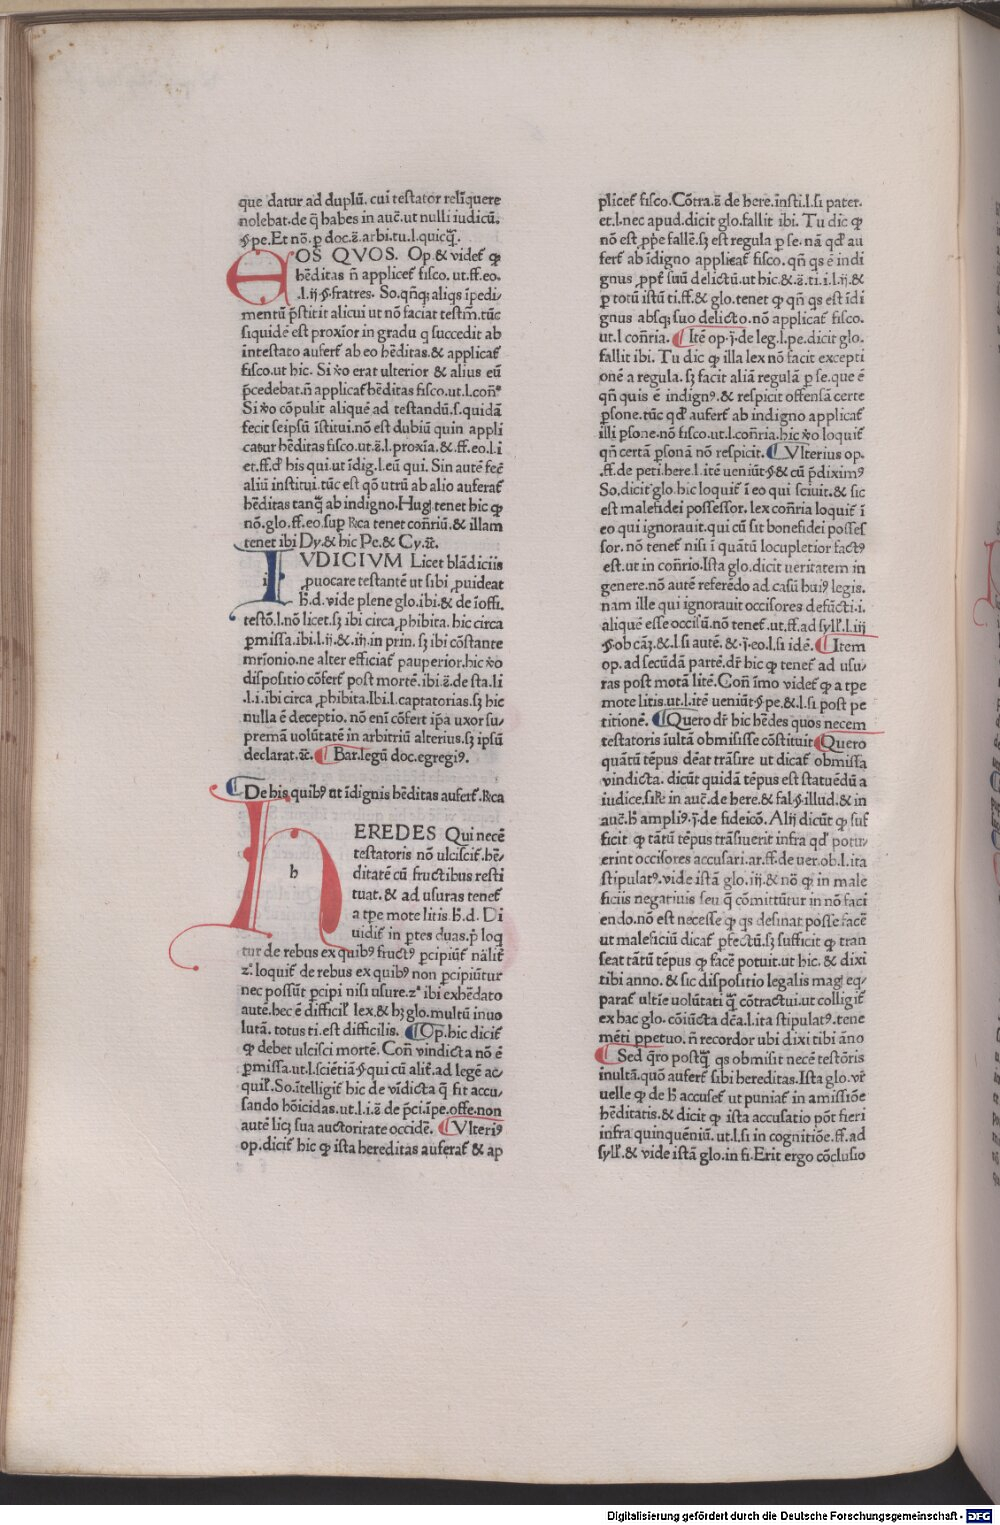 que datur ad duplū. cui testator relīquere
nolebat. de q̄ habes in auē. ut nulli iudicū.
§ pe. Et nō. ꝑ doc. ē. arbi. tu. l. quicq̄.
EOS QVOS. Op. & videt̄ ꝙ
hēditas n̄ applicet̄ fisco. ut. ff. eo.
.l. ij. § fratres. So. qn̄q; aliqs īpedi/
mentū p̄stitit alicui ut nō faciat testm̄. tūc
siquidē est proxīor in gradu q succedit ab
intestato aufert̄ ab eo hēditas. & applicat̄
fisco. ut hic. Si ṽo erat ulterior & alius eū
p̄cedebat. n̄ applicat̄ hēditas fisco. ut. l. con̄ª
Si ṽo cōpulit aliquē ad testandū. s. quidā
fecit seipsū īstitui. nō est dubiū quin appli
catur hēditas fisco. ut. ē. l. proxīa. & ff. eo. l. i
et. ff. d̄ his qui. ut īdig. l. eū qui. Sin autē fec̄
aliū institui. tūc est qō utrū ab alio auferat̄
hēditas tanq̄ ab indigno. Hug. tenet hic ꝙ
nō. glo. ff. eo. suꝑ Rica tenet con̄riū. & illam
tenet ibi Dy. & hic Pe. & Cy. ꝛc̄.
IVDICIVM Licet blādiciis
i ꝓuocare testantē ut sibi ꝓuideat
h̄. d. vide plene glo. ibi. & de ioffi.
testō. l. nō licet. sꝫ ibi circa ꝓhibita. hic circa
ꝑmissa. ibi. l. ij. & . iij. in prin. sꝫ ibi cōstante
mr̄ionio. ne alter efficiat̄ pauperior. hic ṽo
dispositio cōfert̄ post mortē. ibi. ē. de sta. li
.l. i. ibi circa ꝓhibita. Ibi. l. captatorias. sꝫ hic
nulla ē deceptio. nō enī cōfert īp̄a uxor su/
premā uolūtatē in arbitriū alterius. sꝫ ipsū
declarat. ꝛc̄. ¶ Bar. legū doc. egregiꝰ.
¶ De his quibꝰ ut īdignis hēditas aufert̄. Rica
HEREDES Qui necē
h testatoris nō ulciscit̄. hē/
ditatē cū fructibus resti
tuat. & ad usuras tenet̄
a tꝑe mote litis. h̄. d. Di
uidit̄ in ꝑtes duas. p̄ loq
tur de rebus ex quibꝰ fructꝰ ꝑcipiūt̄ nālit̄
zª. loquit̄ de rebus ex quibꝰ non ꝑcipiūtur
nec possūt ꝑcipi nisi usure. zª ibi exhēdato
autē. hec ē difficil̄ lex. & hꝫ glo. multū inuo
lutā. totus ti. est difficilis. ¶ Op. hic dicit̄
ꝙ debet ulcisci mortē. Con̄ vindicta nō ē
ꝑmissa. ut. l. sciētiā § qui cū alit̄. ad legē ac/
quil̄. So. ītelligit̄ hic de vīdicta q̄ fit accu/
sando hōicidas. ut. l. i. ē. de p̄ci. īpe. offe. non
autē licꝫ sua auctoritate occidē. ¶ Vlteriꝰ
op. dicit̄ hic ꝙ ista hereditas auferat̄ & ap
plicet̄ fisco. Cōtra. ē de here. īnsti. l. si pater.
et. l. nec apud. dicit glo. fallit ibi. Tu dic ꝙ
nō est ꝓp̄e fallē. sꝫ est regula ꝑ se. nā qd̄ au
fert̄ ab īdigno applicat̄ fisco. qn̄ qs ē indi
gnus ꝓpt̄ suū delictū. ut hic. & . ē. ti. i. l. ij. &
ꝑ totū istū ti. ff. & glo. tenet ꝙ qn̄ qs est īdi
gnus absqꝫ suo delicto. nō applicat̄ fisco.
ut. l con̄ria. ¶ Itē op. j̄. de leg. l. pe. dicit glo.
fallit ibi. Tu dic ꝙ illa lex nō facit excepti
onē a regula. sꝫ facit aliā regulā ꝑ se. que ē
qn̄ quis ē indignꝰ. & respicit offensā certe
ꝑsone. tūc qd̄ aufert̄ ab indigno applicat̄
illi ꝑsone. nō fisco. ut. l. con̄ria. hic ṽo loquit̄
qn̄ certā ꝑsonā nō respicit. ¶ Vlterius op.
.ff. de peti. here. l. itē ueniūt § & cū p̄diximꝰ
So. dicit̄ glo. hic loquit̄ ī eo qui sciuit. & sic
est malefidei possessor. lex con̄ria loquit̄ ī
eo qui ignorauit. qui cū sit bonefidei posses
sor. nō tenet̄ nisi ī quātū locupletior factꝰ
est. ut in con̄rio. Ista glo. dicit ueritatem in
genere. nō autē referēdo ad casū huiꝰ legis.
nam ille qui ignorauit occisores defūcti. i.
aliquē esse occisū. nō tenet̄. ut. ff. ad syll̄. l. iij
§ ob cāꝫ. & . l. si autē. & . j̄. eo. l. si idē. ¶ Item
op. ad secūdā partē. dr̄ hic ꝙ tenet̄ ad usu/
ras post motā litē. Con̄ īmo videt̄ ꝙ a tꝑe
mote litis. ut. l. itē ueniūt § pe. & . l. si post pe
titionē. ¶ Quero dr̄ hic hēdes quos necem
testatoris īultā obmisisse cōstituit ¶ Quero
quātū tēpus dēat trāsire ut dicat̄ obmissa
vindicta. dicūt quidā tēpus est statuēdū a
iudice. sil̄r in auē. de here. & fal. § illud. & in
auē. h̄ ampliꝰ. j̄. de fideicō. Alij dicūt ꝙ suf
ficit ꝙ tātū tēpus trāsiuerit infra qd̄ potu/
erint occisores accusari. ar. ff. de uer. ob. l. ita
stipulatꝰ. vide istā glo. iij. & nō ꝙ in male
ficiis negatiuis seu q̄ cōmittūtur in nō faci
endo. nō est necesse ꝙ qs desinat posse facē
ut maleficiū dicat̄ ꝑfectū. sꝫ sufficit ꝙ tran
seat tātū tēpus ꝙ facē potuit. ut hic. & dixi
tibi anno. & sic dispositio legalis magꝭ eq/
parat̄ ultie uolūtati q̄ cōtractui. ut colligit̄
ex hac glo. cōiūcta dēa. l. ita stipulatꝰ. tene
mēti ꝑpetuo. n̄ recordor ubi dixi tibi āno
¶ Sed q̄ro postq̄ qs obmisit necē testōris
īnultā. quō aufert̄ sibi hereditas. Ista glo. vr̄
uelle ꝙ de h̄ accuset̄ ut puniat̄ in amissiōe
hēditatis. & dicit ꝙ ista accusatio pōt fieri
infra quinquēniū. ut. l. si in cognitiōe. ff. ad
syll̄. & vide istā glo. in fi. Erit ergo cōclusio
Digitalisierung gefördert durch die Deutsche Forschungsgemeinschaft - DFG